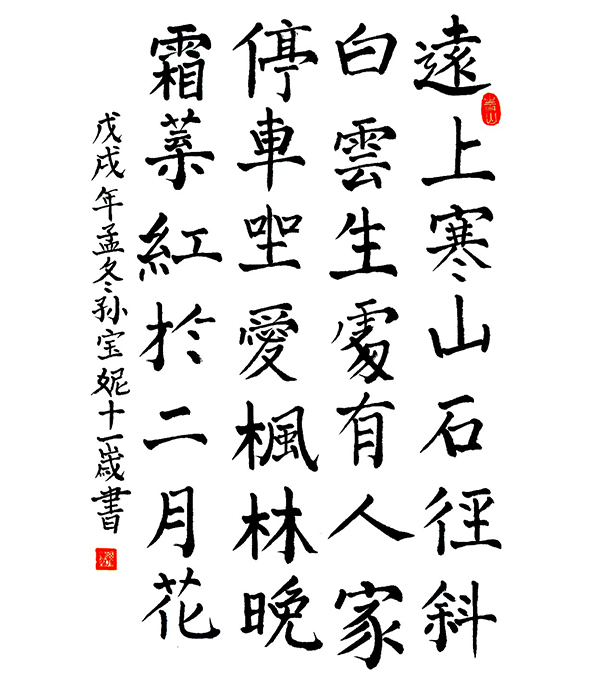 遠上寒山石徑斜
白雲生處有人家
停車坐愛楓林晚
霜葉紅於二月花
戊戌年孟冬孙宝妮十一歲書